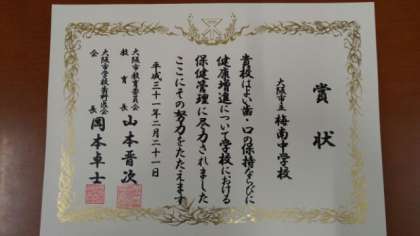 賞状
大阪市立 梅南中学校
貴校はよい歯・口の保持ならびに
健康増進について学校における
保健管理に尽力されました
ここにその努力をたたえます
平成三十一年二月二十一日
大阪市教育委員会
教育長 山本晋次
大阪市学校歯科医会
会長 岡本卓士